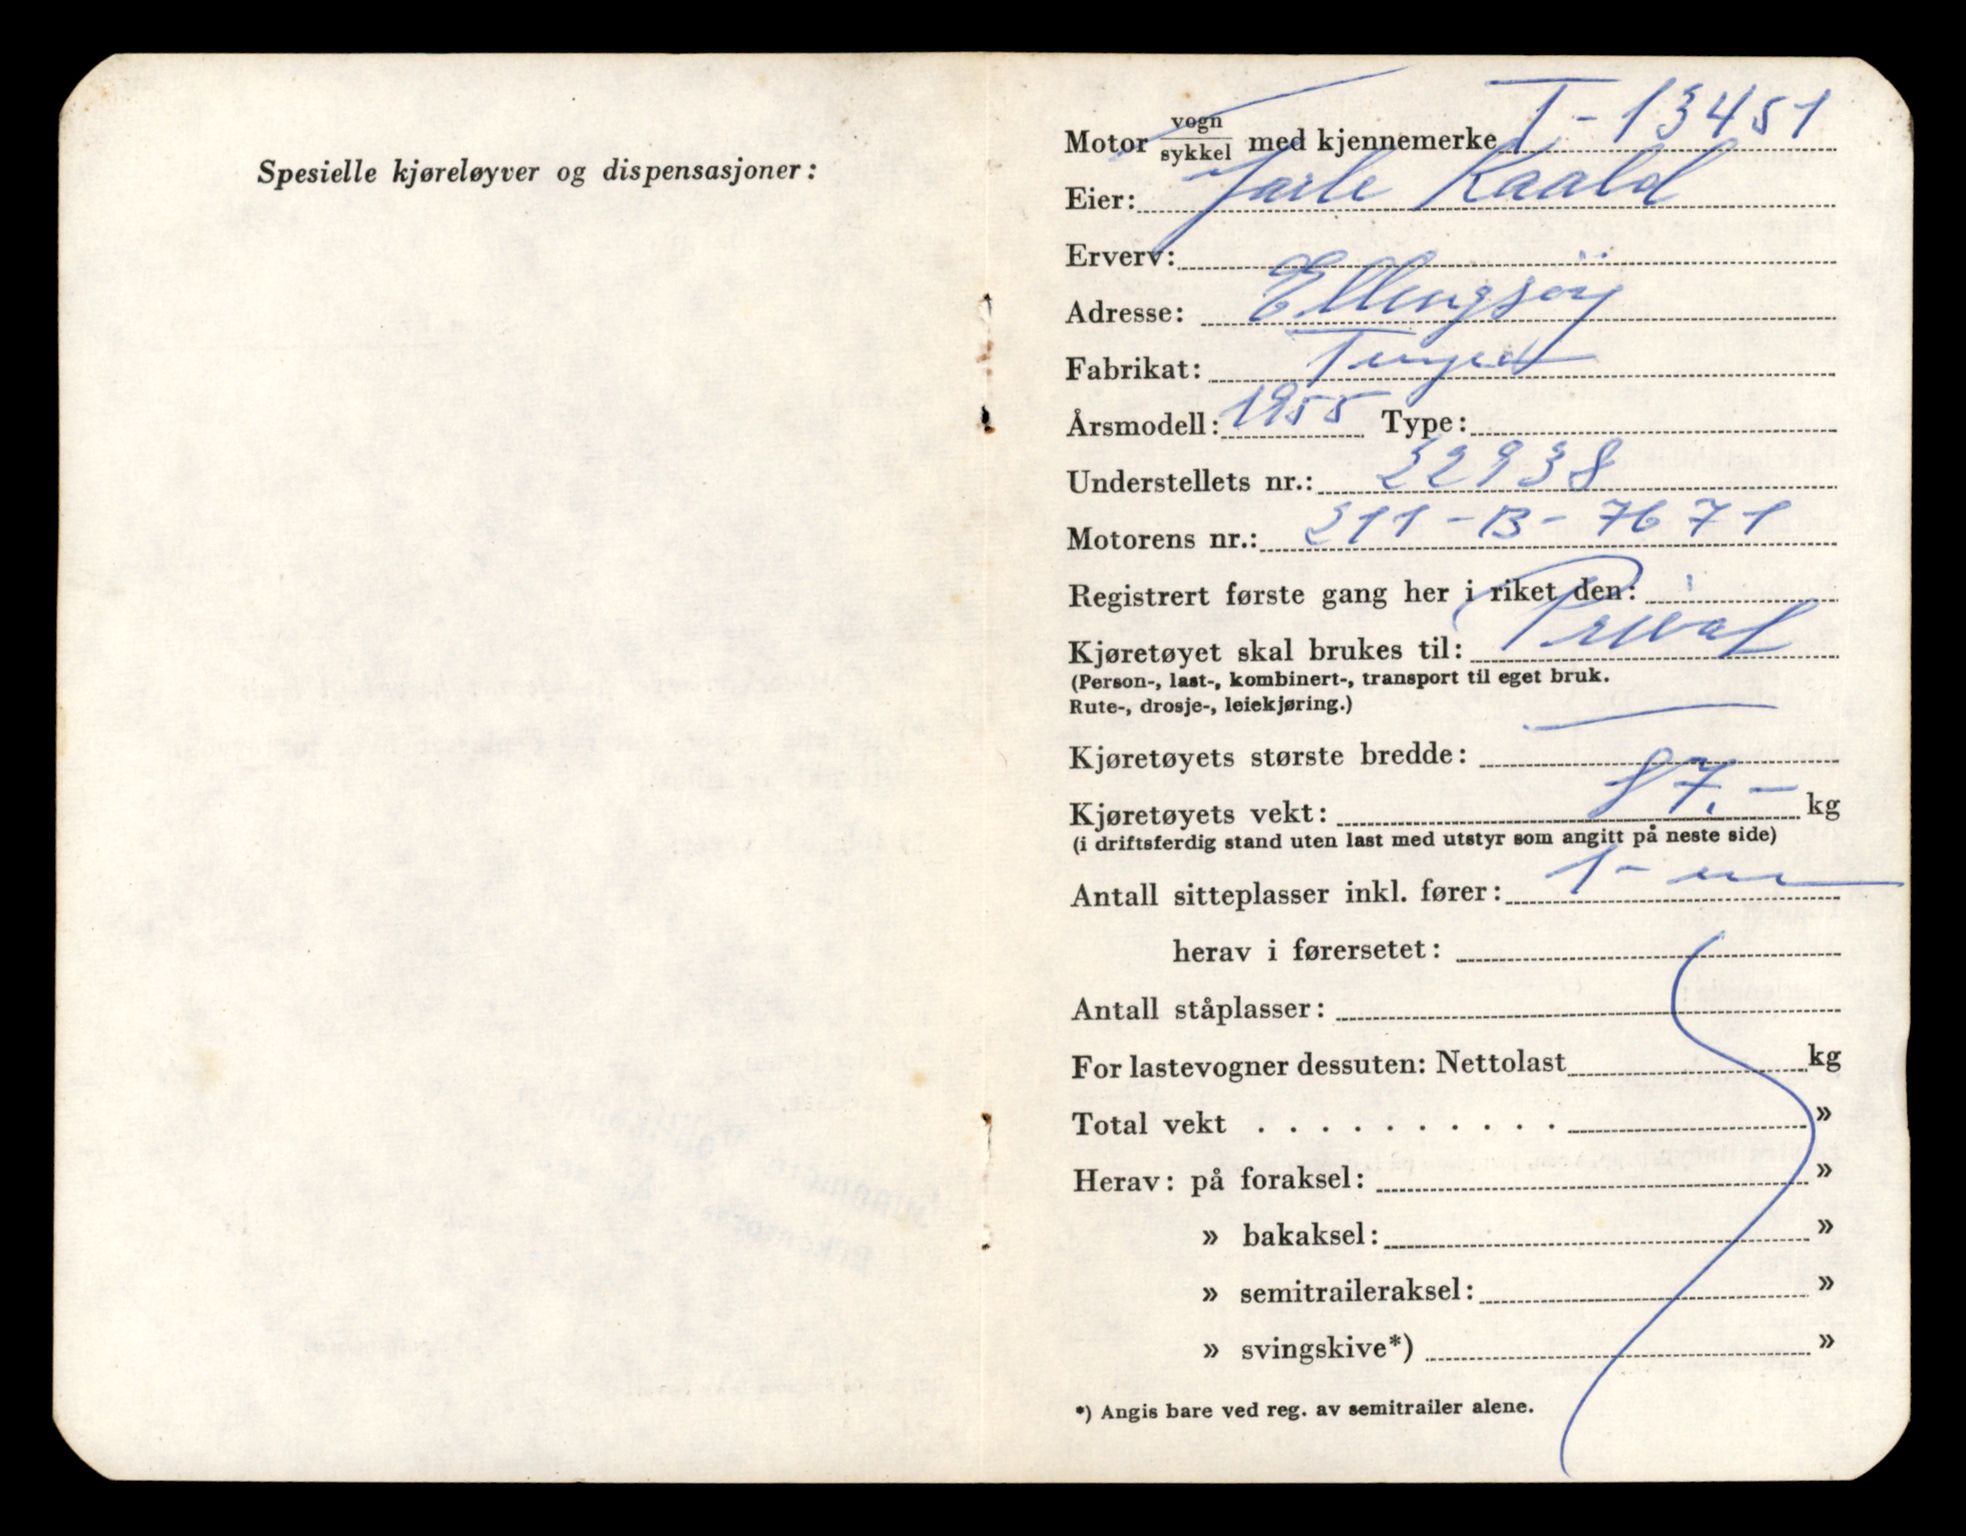 Spesielle kjøreløyver og dispensasjoner:
Motor vogn/sykkel med kjennemerke T-13451
Eier: Jarle Kaald
Erverv:
Adresse: Ellingsøy
Fabrikat: Tempo
Årsmodell: 1955 Type:
Understellets nr.: 22938
Motorens nr.: 211-B-7671
Registrert første gang her i riket den:
Kjøretøyet skal brukes til: Privat
(Person-, last-, kombinert-, transport til eget bruk.
Rute-, drosje-, leiekjøring.)
Kjøretøyets største bredde: —
Kjøretøyets vekt: 87.- kg
(i driftsferdig stand uten last med utstyr som angitt på neste side)
Antall sitteplasser inkl. fører: 1-
herav i førersetet:
Antall ståplasser:
For lastevogner dessuten: Nettolast kg
Total vekt . . . . . . . . . . »
Herav: på foraksel: »
» bakaksel: »
» semitraileraksel: »
» svingskive*) »
*) Angis bare ved reg. av semitrailer alene.